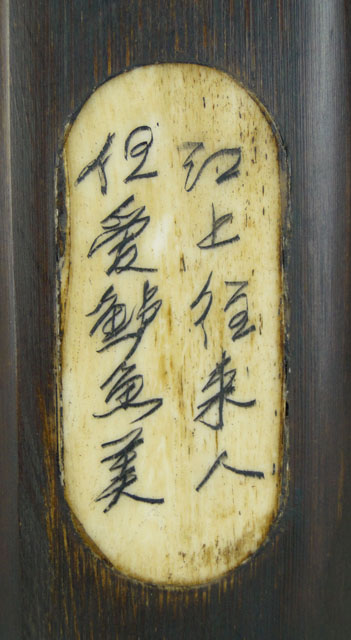 江上往来人
但爱鲈鱼美